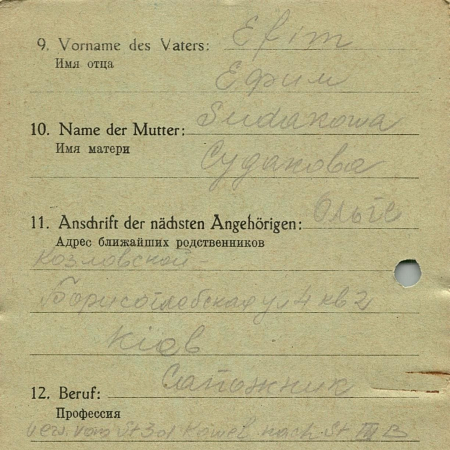 9. Vorname des Vaters: Efim
Имя отца
Ефим
10. Name der Mutter: Sudakowa
Имя матери
Судакова
11. Anschrift der nächsten Angehörigen: Ольге
Адрес ближайших родственников
Козловской-
Борисоглебская ул 4 кв 2
Кіев
12. Beruf: Сапожник
Профессия
vers. vom St 301 Kowel nach St III B